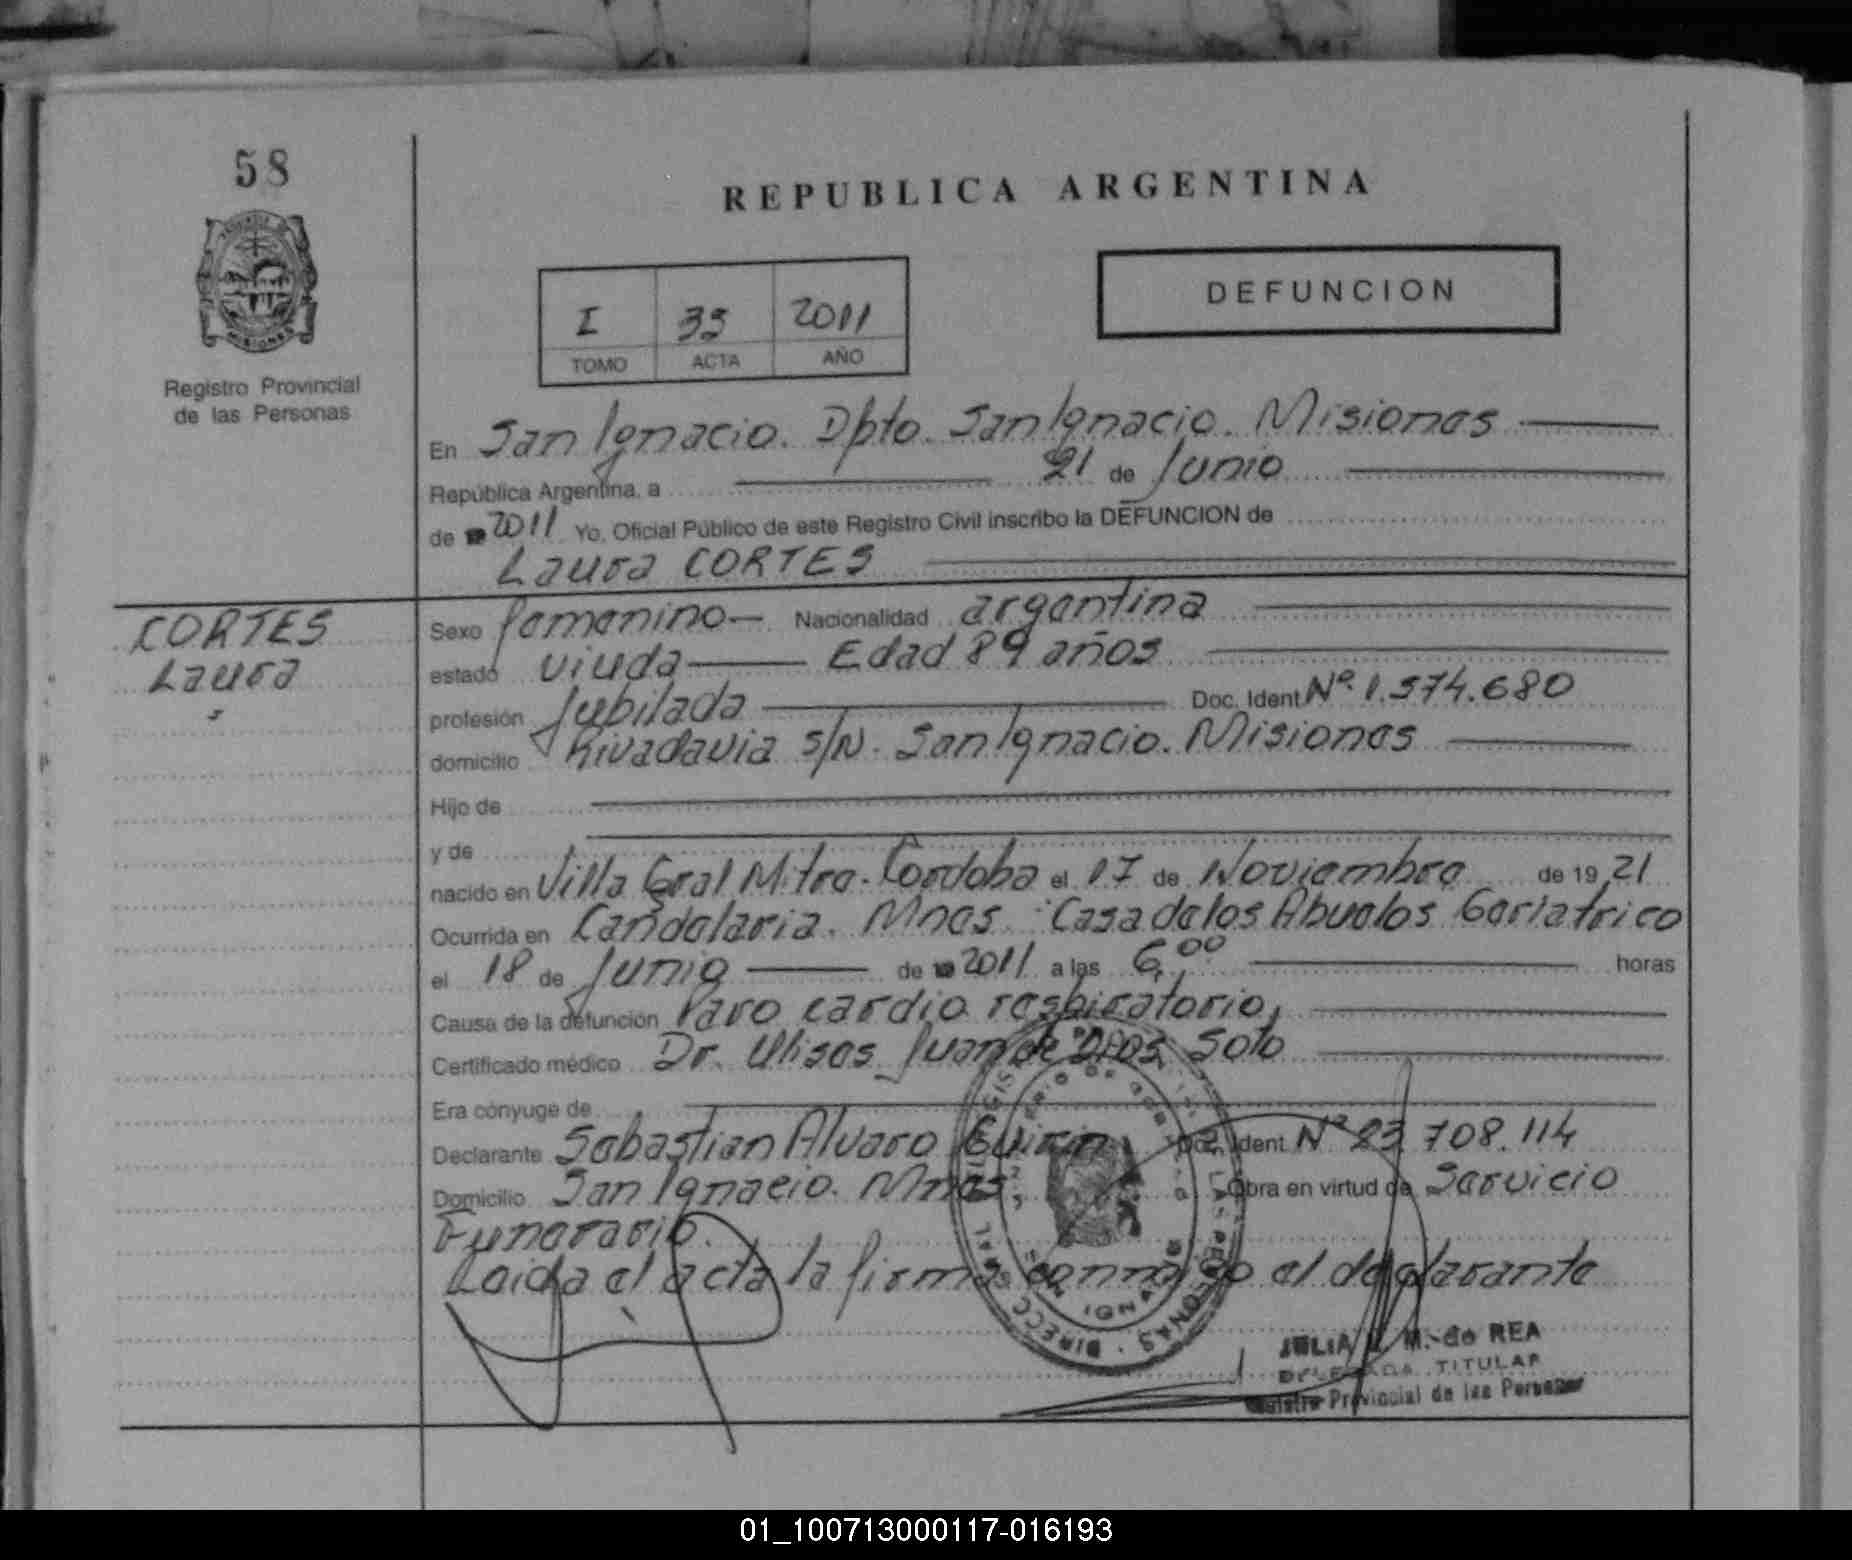 58
REPUBLICA ARGENTINA
I 33 2011
TOMO ACTA AÑO
DEFUNCION
Registro Provincial
de las Personas
En San Ignacio. Dpto. San Ignacio. Misiones
República Argentina, a 21 de Junio
de 2011 Yo, Oficial Público de este Registro Civil inscribo la DEFUNCION de
Laura CORTES
CORTES
Laura
Sexo femenino Nacionalidad argentina
estado viuda Edad 89 años
profesión Jubilada Doc. Ident Nº. 1.574.680
domicilio Rivadavia s/N. San Ignacio. Misiones
Hijo de
y de
nacido en Villa Gral Mitre. Cordoba el 17 de Noviembre de 19 21
Ocurrida en Candelaria. Mnes. Casa de los Abuelos Geriatrico
el 18 de Junio de 2011 a las 6,00 horas
Causa de la defunción Paro cardio respiratorio,
Certificado médico Dr. Ulises Juan de Dios Soto
Era cónyuge de
Declarante Sebastian Alvaro Doc. Ident Nº 23.708.114
Domicilio San Ignacio. Mnes. Obra en virtud de Servicio
Funerario.
Leida el acta la firma conmigo el declarante
JULIA M. de REA
DELEGADA TITULAR
Registro Provincial de las Personas
01_100713000117-016193